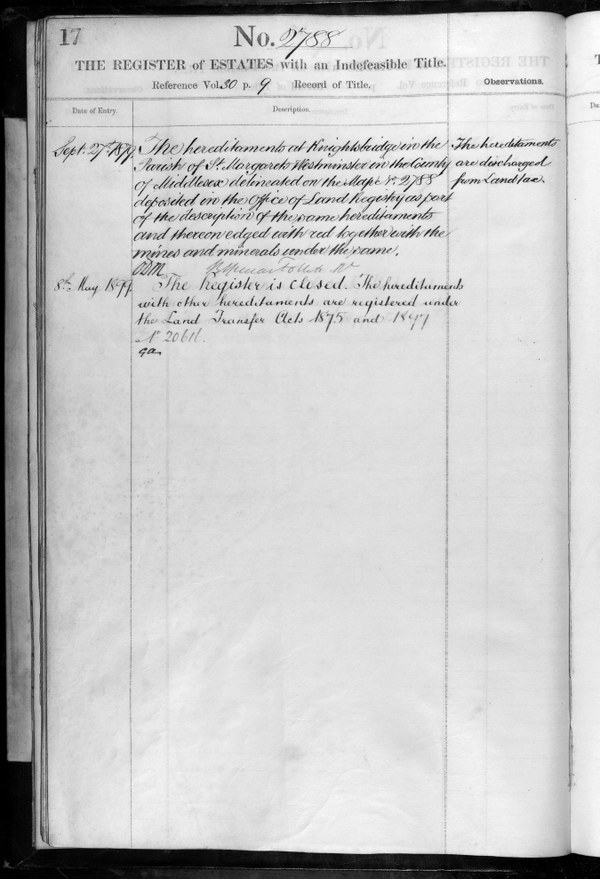 17
No. 2788
THE REGISTER of ESTATES with an Indefeasible Title.
Reference Vol. 30 p. 9 Record of Title.
Observations.
Date of Entry.
Description.
Sept. 27th 1879
The hereditaments at Knightsbridge in the
Parish of St. Margarets Westminster in the County
of Middlesex delineated on the Map No. 2788
deposited in the Office of Land Registry as part
of the description of the same hereditaments
and thereon edged with red together with the
mines and minerals under the same.
The hereditaments
are discharged
from Land tax.
8th May 1899
The Register is closed. The hereditaments
with other hereditaments are registered under
the Land Transfer Acts 1875 and 1897